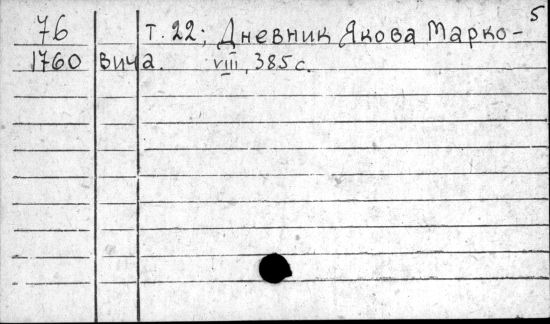 5
76 т. 22; Дневник Якова Марко-
1760 вича. viii, 385 с.